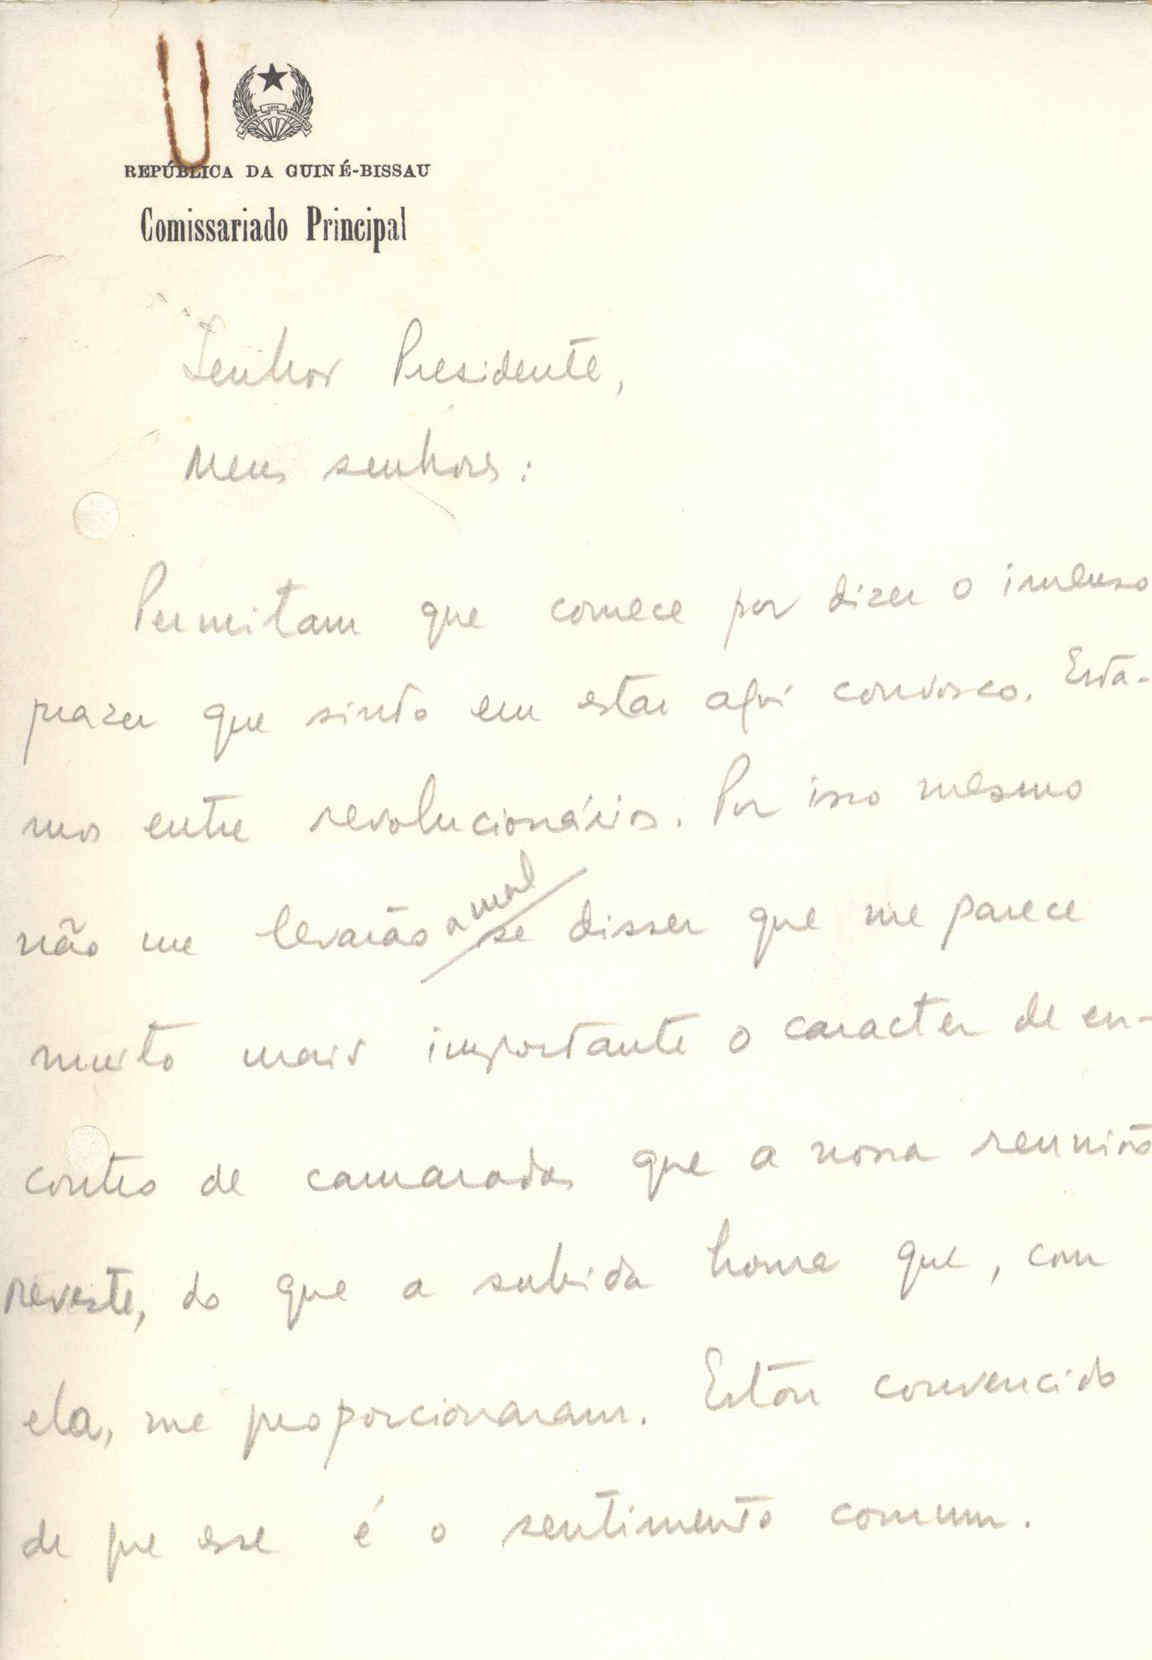 REPÚBLICA DA GUINÉ-BISSAU
Comissariado Principal
Senhor Presidente,
Meus senhores:
Permitam que comece por dizer o imenso
prazer que sinto em estar aqui convosco. Esta-
mos entre revolucionários. Por isso mesmo
não me levarão a mal se disser que me parece
muito mais importante o caracter de en-
contro de camaradas que a nossa reunião
reveste, do que a subida honra que, com
ela, me proporcionaram. Estou convencido
de que esse é o sentimento comum.